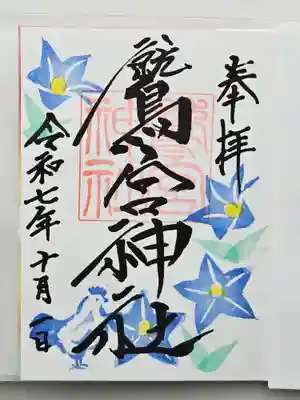 奉拝
鷲宮神社
令和七年十月一日
神社